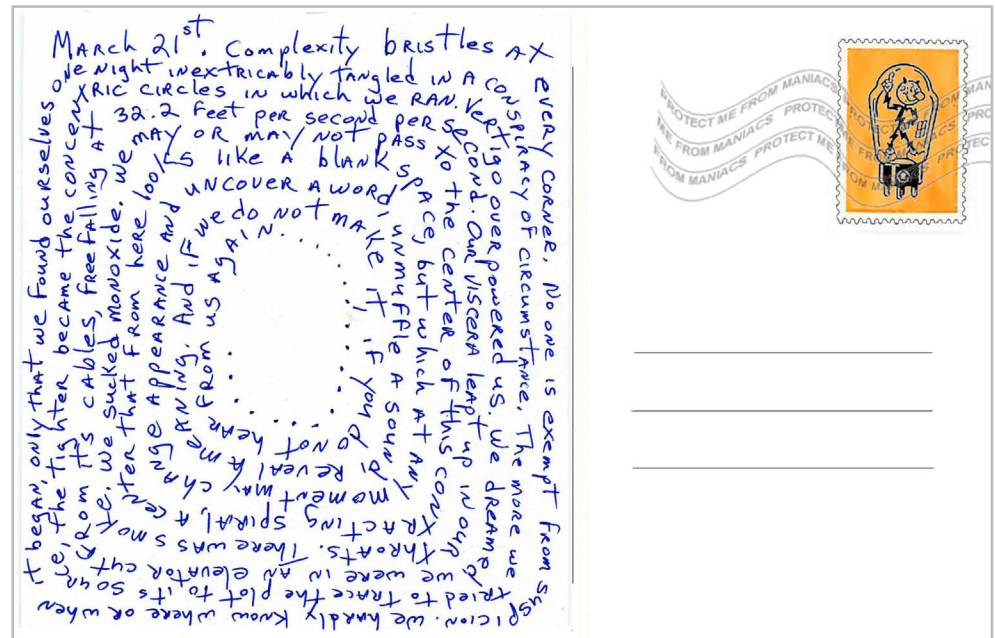 March 21st. Complexity bristles at
every corner. No one is exempt from suspicion.
we hardly know where or when
it began, only that we found ourselves
one night inextricably tangled in a conspiracy of circumstance. The more we
tried to trace the plot to it's source,
the tighter became the concentric circles in which we ran.
Vertigo overpowered us. We dreamed
we were in an elevator cut
from its cables, freefalling at
32.2 feet per second per second. Our viscera leapt up in our
throats. There was smoke.
We sucked monoxide. We
may or may not pass to the center of this contracting spiral, a center that from here looks
like a blank space, but which at any
moment may change appearance and
uncover a word, unmuffle a sound,
reveal a meaning. And if
we do not make it, if you do not hear from us again.......
PROTECT ME FROM MANIACS PROTECT ME FROM MANIACS